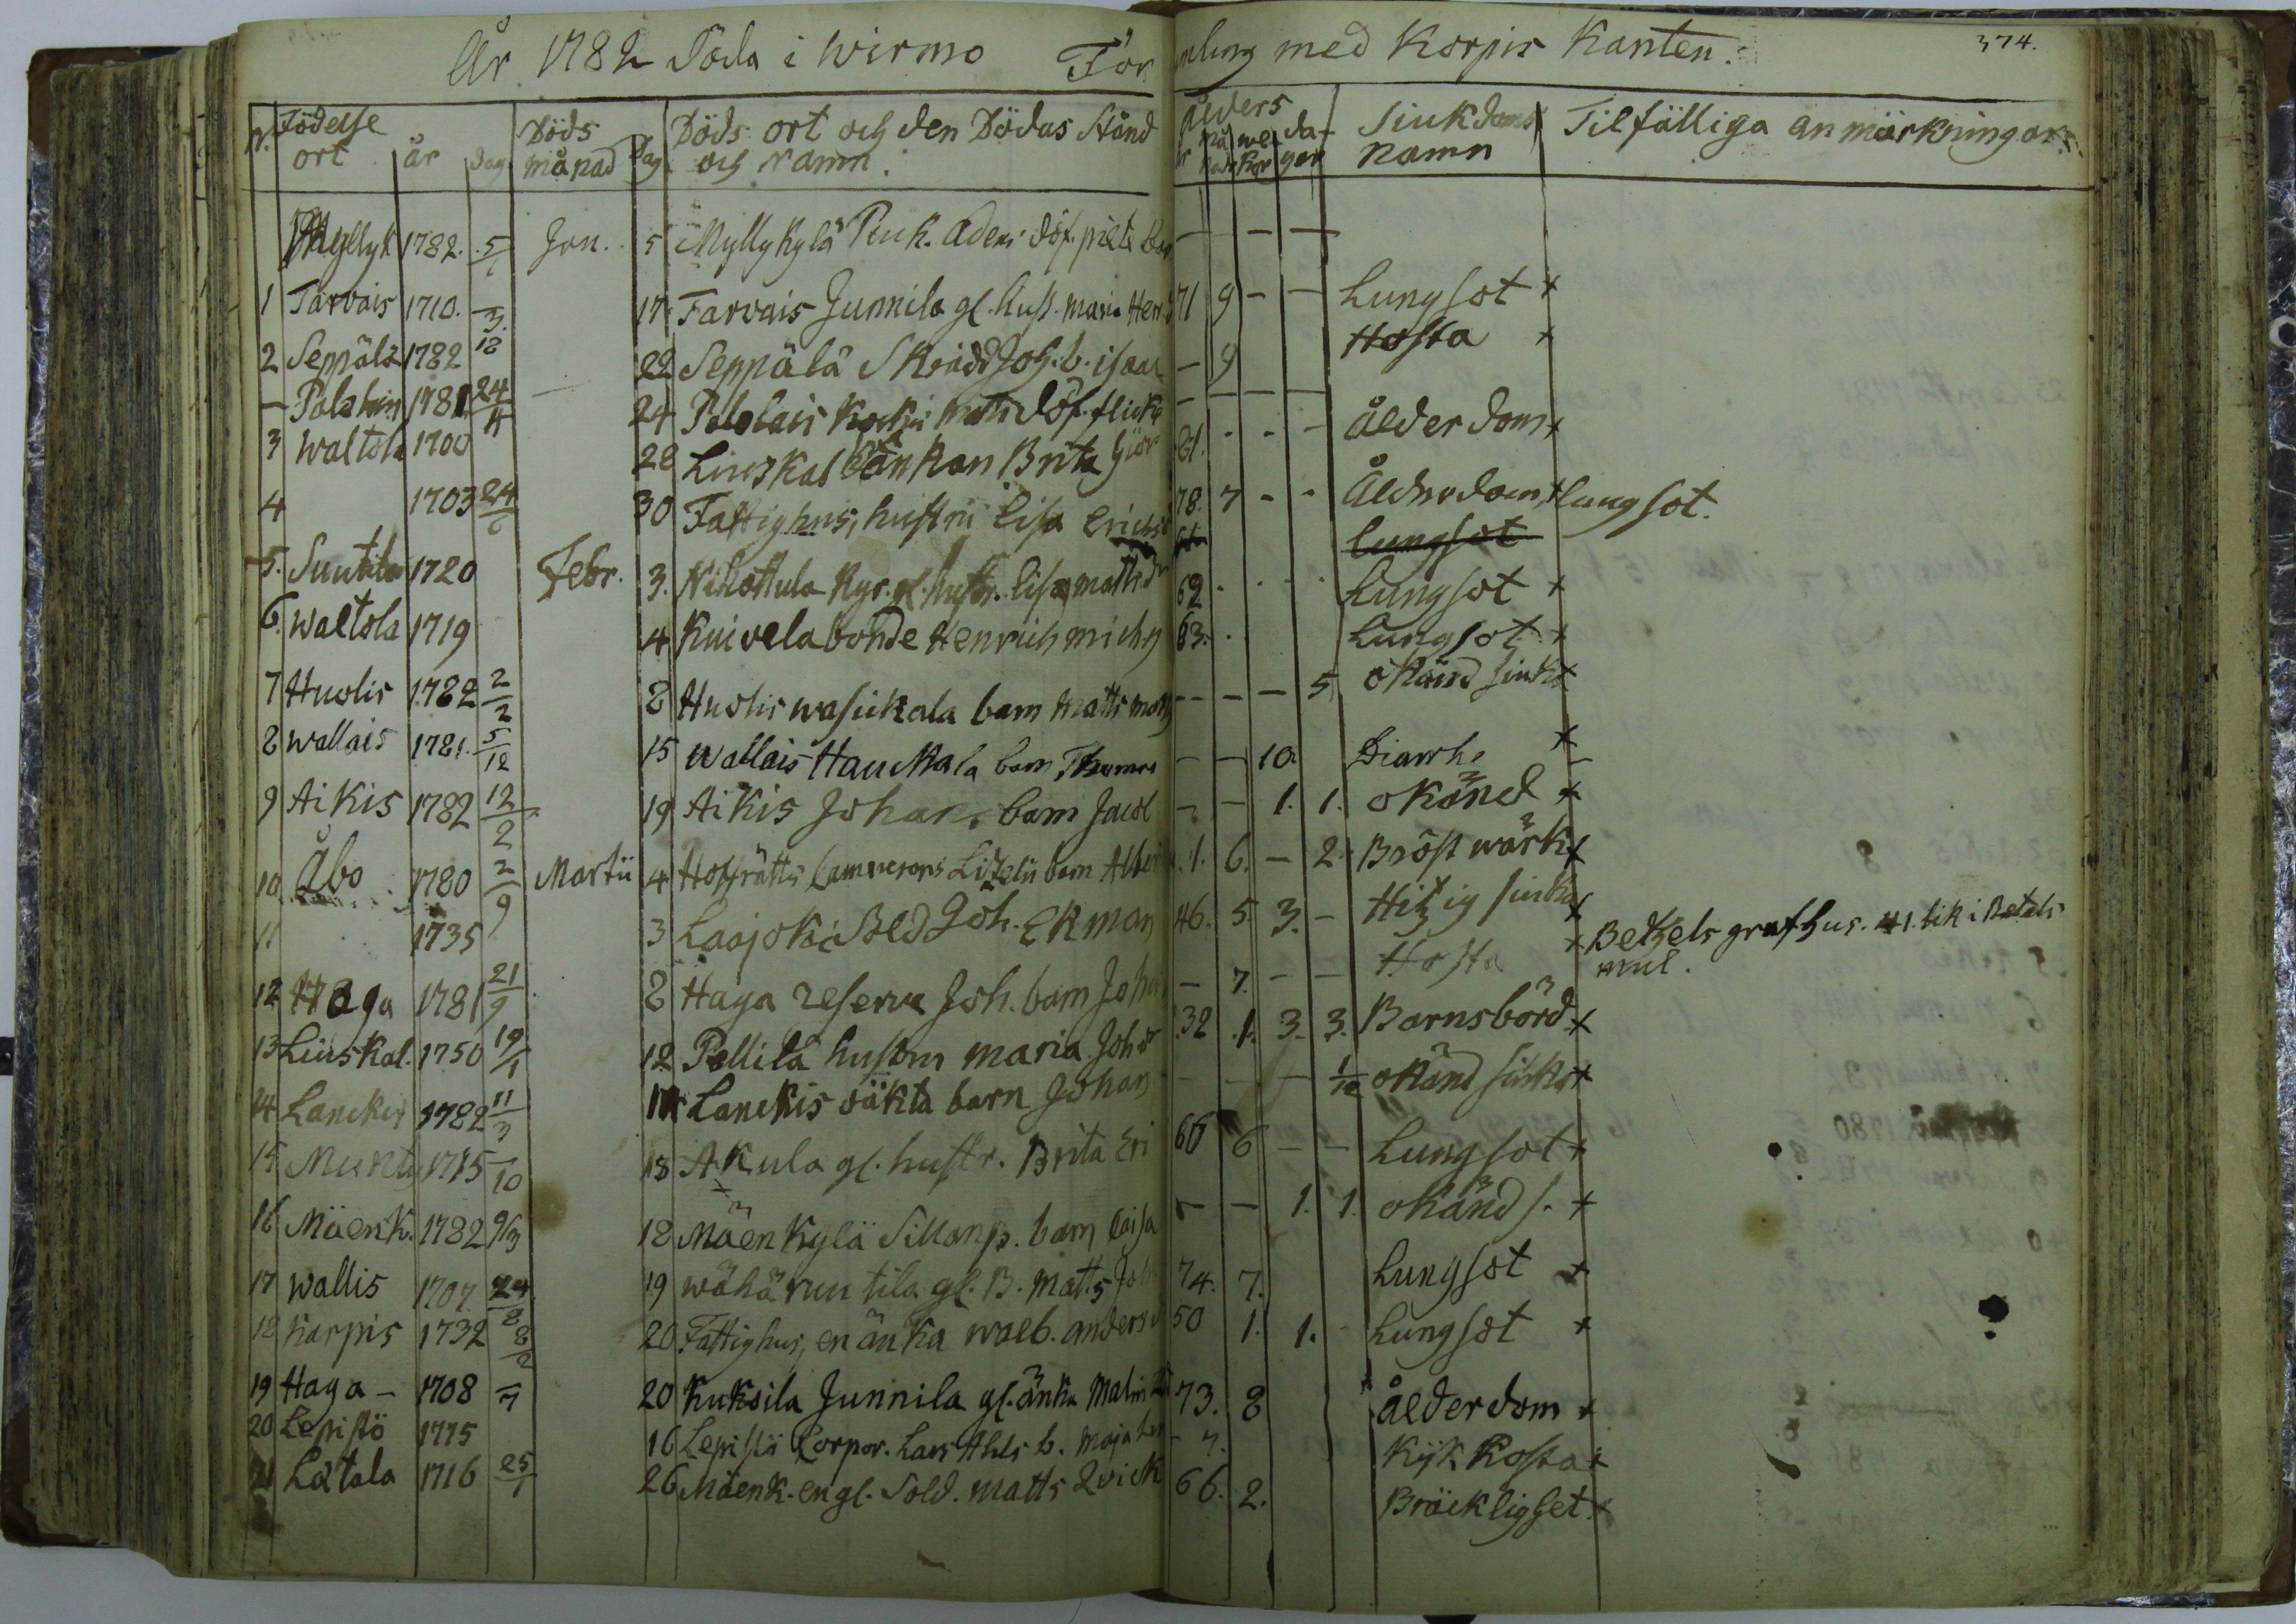 År 1782 Döda i Wirmo För
mling med Korpis Kanten.
374.
N. Födelse ort år dag Döds månad Dag Döds ort och den Dödas Stånd och Namn. Ålders år må nad we kor da gar Siukdoms namn Tilfälliga anmärkningar.
Myllyk 1782. 5/1 Jan. 5 Myllykylä Adens döf. — — —
1 Tarvais 1710. 17 Tarvais Junnila gl. hust. Maria Hen 71 9 — — Lungsot +
2 Seppälä 1782 22 Seppälä Joh. b. isaac — 9 Hosta +
— 1781 24 24 döf. flicka — — — —
3 Waltola 1700 28 Änkan Brita 81. - - - Ålderdom +
4 1703 24 30 Fattighus, hustru Lisa Erichs 78. 7 - - Ålderdom + lungsot.
lungsot
5. Suutila 1720 Febr. 3. Nihattula Ryt. gl. hustr. Lisa Matts dr 62 . . . Lungsot +
6. Waltola 1719 4 Knivela bonde Henrich Michs 63. . Lungsot +
7 Huolis 1782 2/2 8 Huolis wasikala barn Matts — — — 5 okänd siuk +
8 Wallais 1781. 5/12 15 Wallais Hauckala barn Thomas — — 10 Diarrhe +
9 Aikis 1782 12/2 19 Aikis Johan. barn Jacob — — 1. 1. okänd +
10 Åbo 1780 2/9 Martii 4 Hoffrätts barn 1. 6. — 2. Bröstwärk +
11 1735 3 Laajoki Sold Joh. Ekman 46. 5 3. — Hitzig siuka + Bethels grafhus. #1. lik i Betels
12 Haga 1781 21/9 8 Haga reserve Joh. barn Joha — 7. — — Hosta +
13 Liuskal. 1750 19/1 12 Pellilä hustru Maria Joh dr 32 1. 3. 3. Barnsbörd +
14 Lanckis 1782 11/3 11 Lanckis oäkta barn Johan — — — 1/12 okänd siuka +
15 1715 10 13 Akula gl. hustr. Brita Eri 66 6 — — Lungsot +
16 Mäenk. 1782 9/3 18 Mäenkylä Sillanp. barn Caisa — — 1. 1. okänd s. +
17 Wallis 1707. 24/8 19 Wähäruutila gl. B. Matts Joh 74. 7. Lungsot +
18 Karpis 1732 8/2 20 Fattighus, en änka Walb. anders d 50 1. 1. Lungsot +
19 Haga — 1708 7 20 Kuksila Junnila gl. änka Malin 73. 8 Ålderdom +
20 Lepistö 1775 16 Lepistö Corpor. Lars Ahls b. Maja — 7. Kijkhosta +
21 Latala 1716 25/1 26 Mäenk. en gl. Sold. Matts Qvick 66. 2. Bräcklighet +